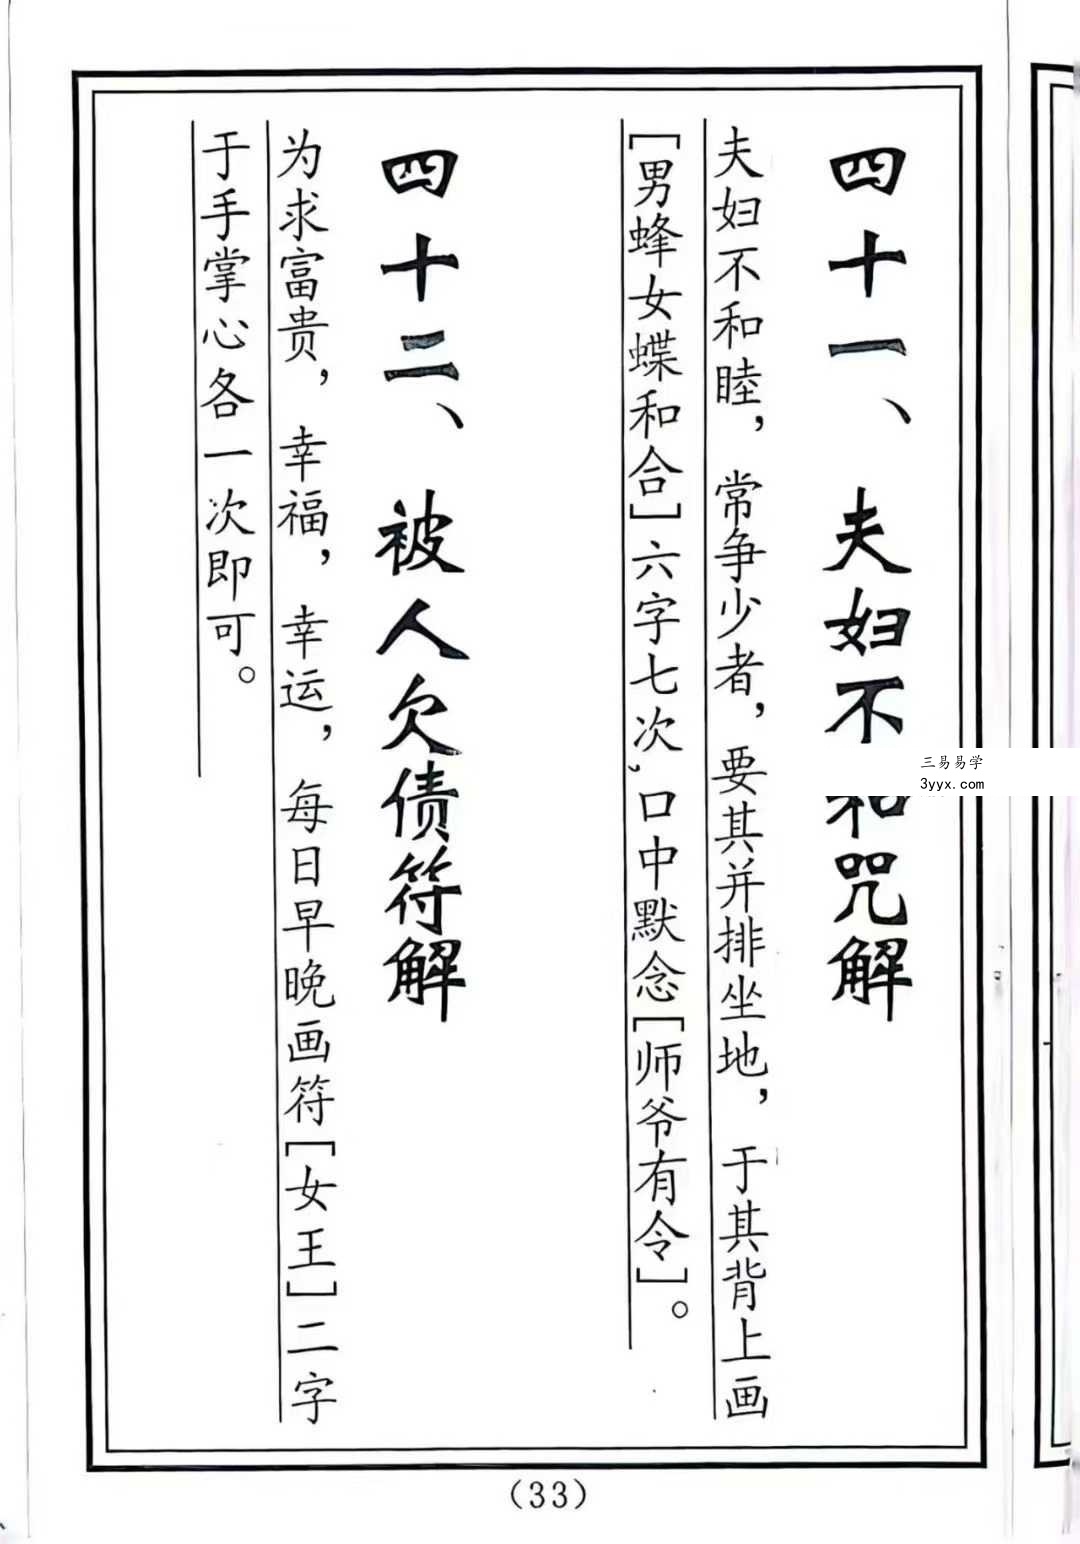 四十一、夫妇不和咒解
夫妇不和睦，常争少者，要其并排坐地，于其背上画
[男蜂女蝶和合]六字七次,口中默念[师爷有令]。
四十二、被人欠债符解
为求富贵，幸福，幸运，每日早晚画符[女王]二字
于手掌心各一次即可。
(33)
三易易学
3yyx.com